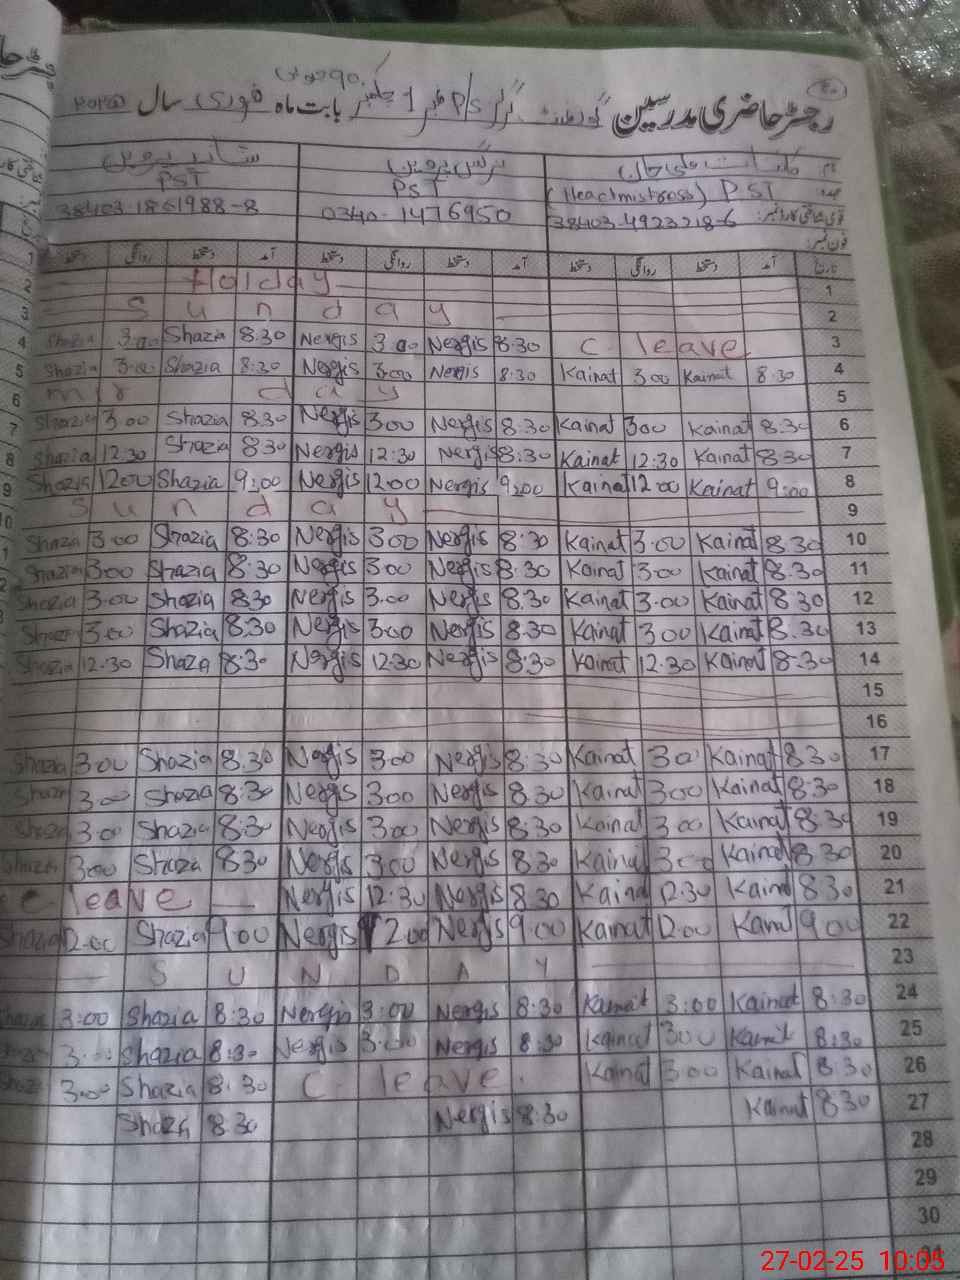 رجسٹر حاضری مدرسین گورنمنٹ گرلز P/S نمبر 1 بابت ماہ فروری سال
نام نرگس پروین شازیہ پروین
عہدہ (Headmistress) PST PST PST
قومی شناختی کارڈ نمبر: 38403-4923218-6 0340-1476950 38403-1861988-8
فون نمبر:
تاریخ آمد دستخط روانگی دستخط آمد دستخط روانگی دستخط آمد دستخط روانگی دستخط
Holday 1
Sunday 2
Shazia 3.00 Shazia 8.30 Nergis 3.00 Nergis 8.30 C. leave 3
Shazia 3.00 Shazia 8:30 Nergis 3.00 Nergis 8:30 Kainat 3.00 Kainat 8.30 4
day 5
Shazia 3.00 Shazia 8.30 Nergis 3.00 Nergis 8.30 Kainat 3.00 Kainat 8.30 6
Shazia 12.30 Shazia 8.30 Nergis 12:30 Nergis 8:30 Kainat 12:30 Kainat 8.30 7
Shazia 12.00 Shazia 9:00 Nergis 12.00 Nergis 9:00 Kainat 12.00 Kainat 9:00 8
Sunday 9
Shazia 3.00 Shazia 8:30 Nergis 3.00 Nergis 8:30 Kainat 3.00 Kainat 8.30 10
Shazia 3.00 Shazia 8:30 Nergis 3.00 Nergis 8:30 Kainat 3.00 Kainat 8.30 11
Shazia 3.00 Shazia 8.30 Nergis 3.00 Nergis 8.30 Kainat 3.00 Kainat 8.30 12
Shazia 3.00 Shazia 8.30 Nergis 3.00 Nergis 8.30 Kainat 3.00 Kainat 8.30 13
Shazia 12.30 Shaza 8.30 Nergis 12.30 Nergis 8:30 Kainat 12.30 Kainat 8:30 14
15
16
Shazia 3.00 Shazia 8.30 Nergis 3.00 Nergis 8:30 Kainat 3.00 Kainat 8.30 17
Shazia 3.00 Shazia 8:30 Nergis 3.00 Nergis 8.30 Kainat 3.00 Kainat 8.30 18
Shazia 3.00 Shazia 8:30 Nergis 3.00 Nergis 8:30 Kainat 3.00 Kainat 8.30 19
Shazia 3.00 Shaza 8.30 Nergis 3.00 Nergis 8.30 Kainat 3.00 Kainat 8.30 20
C. leave Nergis 12.30 Nergis 8.30 Kainat 12.30 Kainat 8.30 21
Shazia 12.00 Shazia 9.00 Nergis 12.00 Nergis 9.00 Kainat 12.00 Kainat 9.00 22
SUNDAY 23
Shazia 3:00 Shazia 8:30 Nergis 3:00 Nergis 8:30 Kainat 3:00 Kainat 8:30 24
3.00 Shazia 8:30 Nergis 3:00 Nergis 8:30 Kainat 3.00 Kainat 8:30 25
Shazia 3.00 Shazia 8.30 C. leave. Kainat 3.00 Kainat 8.30 26
Shazia 8.30 Nergis 8:30 Kainat 8.30 27
28
29
30
31
27-02-25 10:05